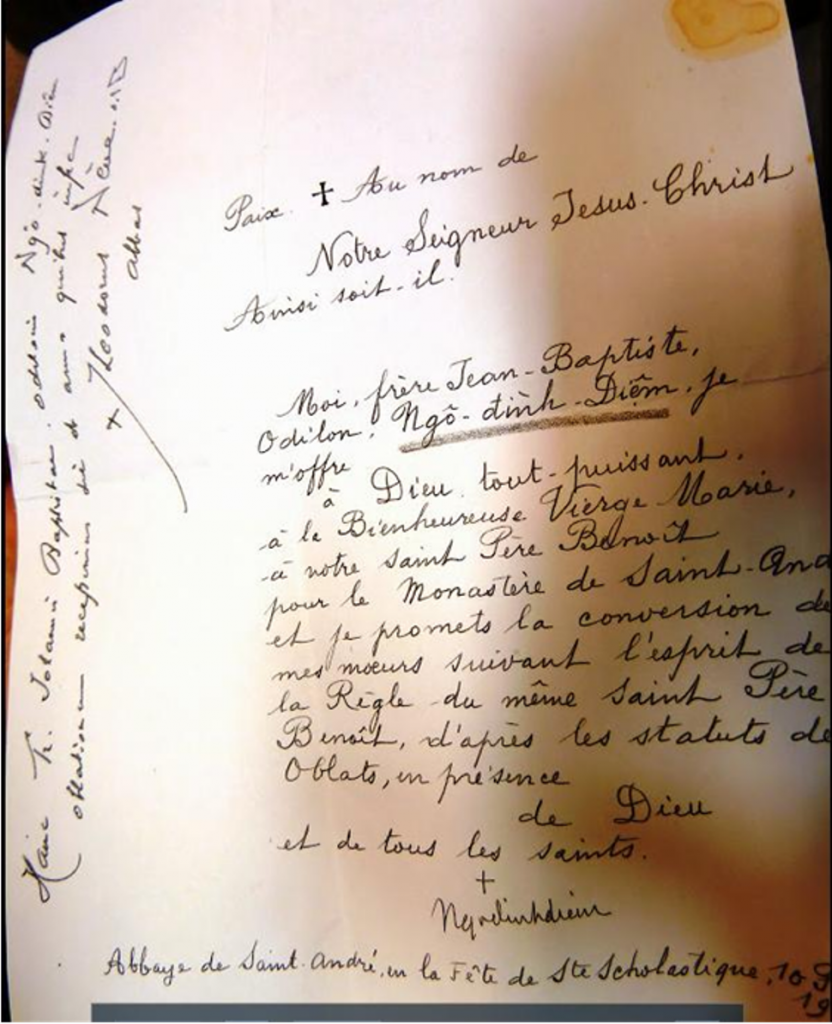 Paix. † Au nom de
Notre Seigneur Jesus-Christ
Ainsi soit-il.
Moi, frère Jean-Baptiste,
Odilon, Ngô-đình-Diệm, je
m'offre
à Dieu tout-puissant,
à la Bienheureuse Vierge Marie,
à notre saint Père Benoît
pour le Monastère de Saint-And
et je promets la conversion de
mes mœurs suivant l'esprit de
la Règle du même saint Père
Benoît, d'après les statuts de
Oblats, en présence
de Dieu
et de tous les saints.
+
Ngodinhdiem
Abbaye de Saint-André, en la Fête de Ste Scholastique, 10
19
Hanc Fr. Joannis Baptistae Odilonis Ngô-dinh-Diêm
oblationem recepimus die et anno quibus
+ Theodorus Nève
abbas